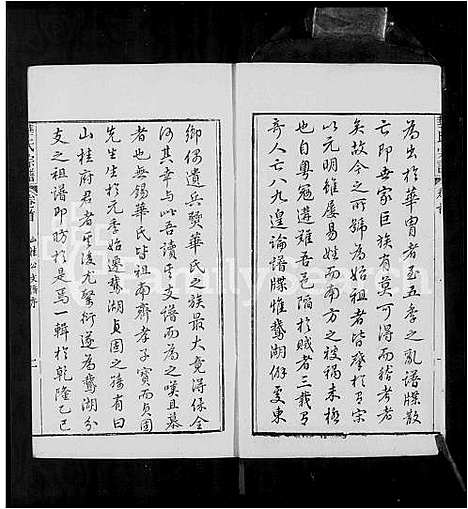 為出於華胄者至五季之亂譜牒散
亡即世家巨族有莫可得而稽考者
矣故今之所號為始祖者皆肇於有宋
以元明雄屢易姓而南方之被禍未極
也自粵寇遘難吾邑陷於賊者三載有
奇人亡八九遑論譜牒惟鵝湖僻處東
鄉偶遺兵燹華氏之族最大竟得保全
何其幸与此吾讀其支譜而為之嘆且慕
者也無錫華氏皆祖南齊孝子寶而貞固
先生生於元季始遷鵝湖貞固之孫有曰
山桂府君者其後尤繁衍遂為鵝湖分
支之祖譜即昉於是焉一輯於乾隆乙巳
華氏宗譜
卷首
山桂公支譜序
FamilySearch